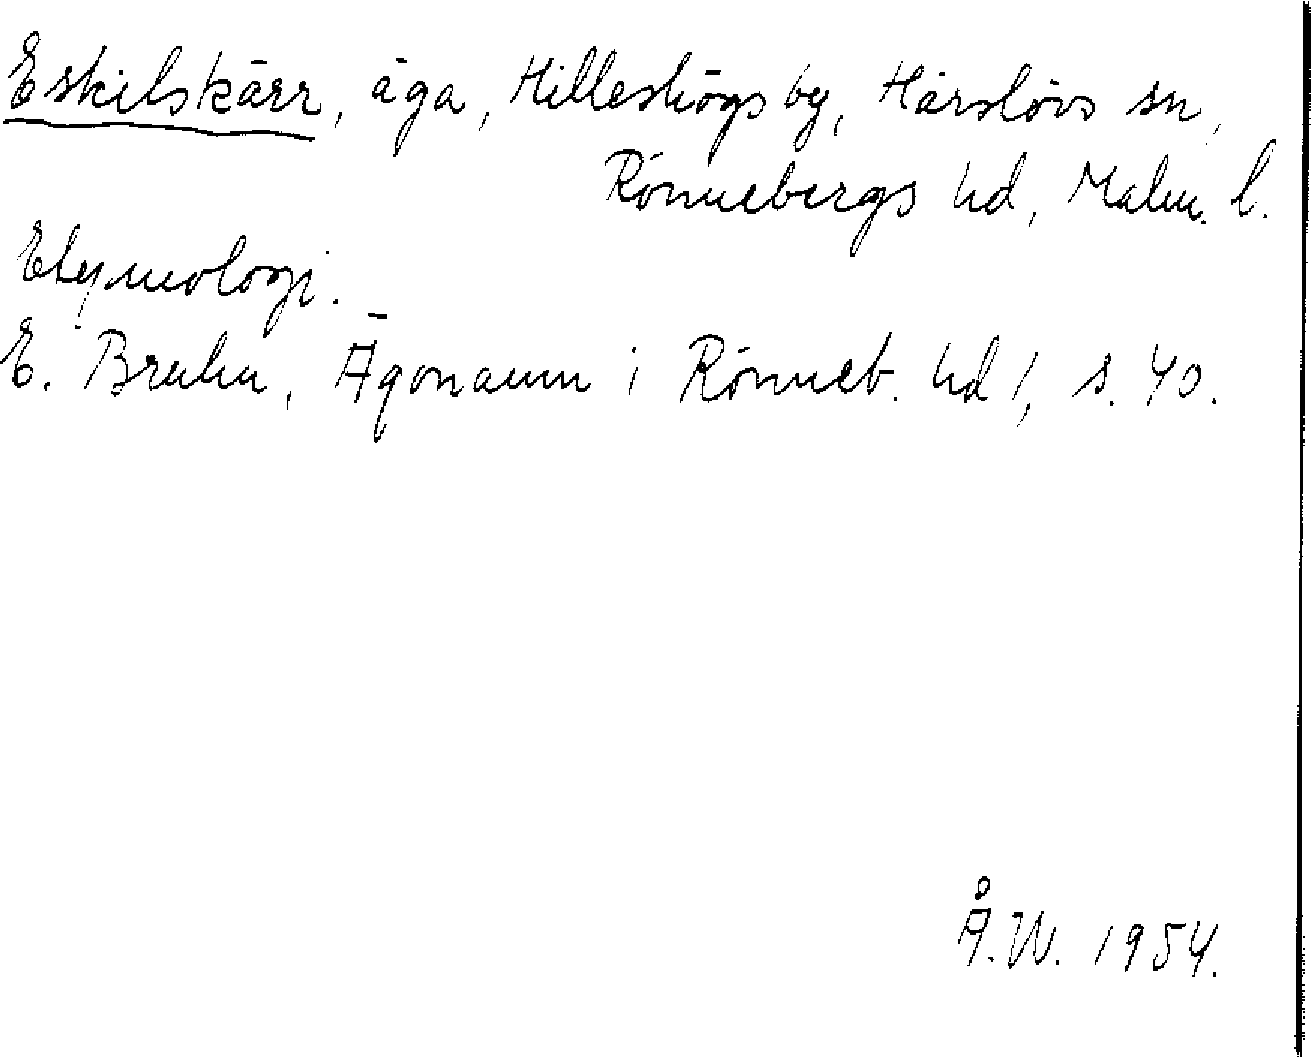 Eskilskärr, äga, Hilleshögs by, Härslövs sn,
Rönnebergs hd, Malm. l.
Etymologi.
E. Bruhn, Ägonamn i Rönneb. hd 1, s. 40.
Å. W. 1954.